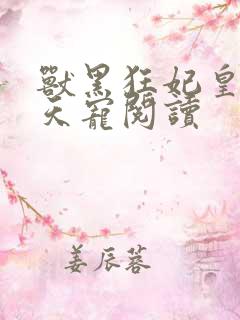 獸黑狂妃皇
天寵閱讀
姜辰蓉